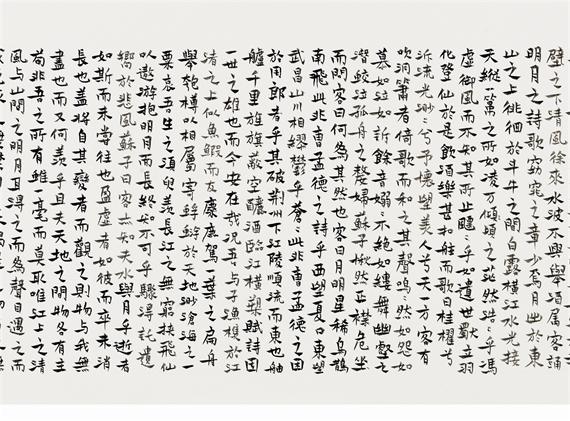 壁之下清風徐來水波不興舉酒屬客誦
明月之詩歌窈窕之章少焉月出於東
山之上徘徊於斗牛之間白露橫江水光接
天縱一葦之所如凌萬頃之茫然浩〻乎馮
虛御風而不知其所止飄〻乎如遺世獨立羽
化登仙於是飲酒樂甚扣舷而歌曰桂櫂兮
泝流光渺〻兮予懷望美人兮天一方客有
吹洞簫者倚歌而和之其聲嗚〻然如怨如
慕如泣如訴餘音嫋〻不絕如縷舞幽壑之
潛蛟泣孤舟之嫠婦蘇子愀然正襟危坐
而問客曰何為其然也客曰月明星稀烏鵲
南飛此非曹孟德之詩乎西望夏口東望
武昌山川相繆鬱乎蒼〻此非曹孟德之困
於周郎者乎其破荊州下江陵順流而東也舳
艫千里旌旗蔽空釃酒臨江橫槊賦詩固
一世之雄也而今安在哉況吾與子漁樵於江
渚之上侶魚蝦而友麋鹿駕一葉之扁舟
舉匏樽以相屬寄蜉蝣於天地渺滄海之一
粟哀吾生之須臾羨長江之無窮挾飛仙
以遨遊抱明月而長終知不可乎驟得託遺
響於悲風蘇子曰客亦知夫水與月乎逝者
如斯而未嘗往也盈虛者如彼而卒未消
長也蓋將自其變者而觀之則物與我無
盡也而又何羨乎且夫天地之間物各有主
苟非吾之所有雖一毫而莫取唯江上之清
風與山間之明月耳得之而為聲目遇之而